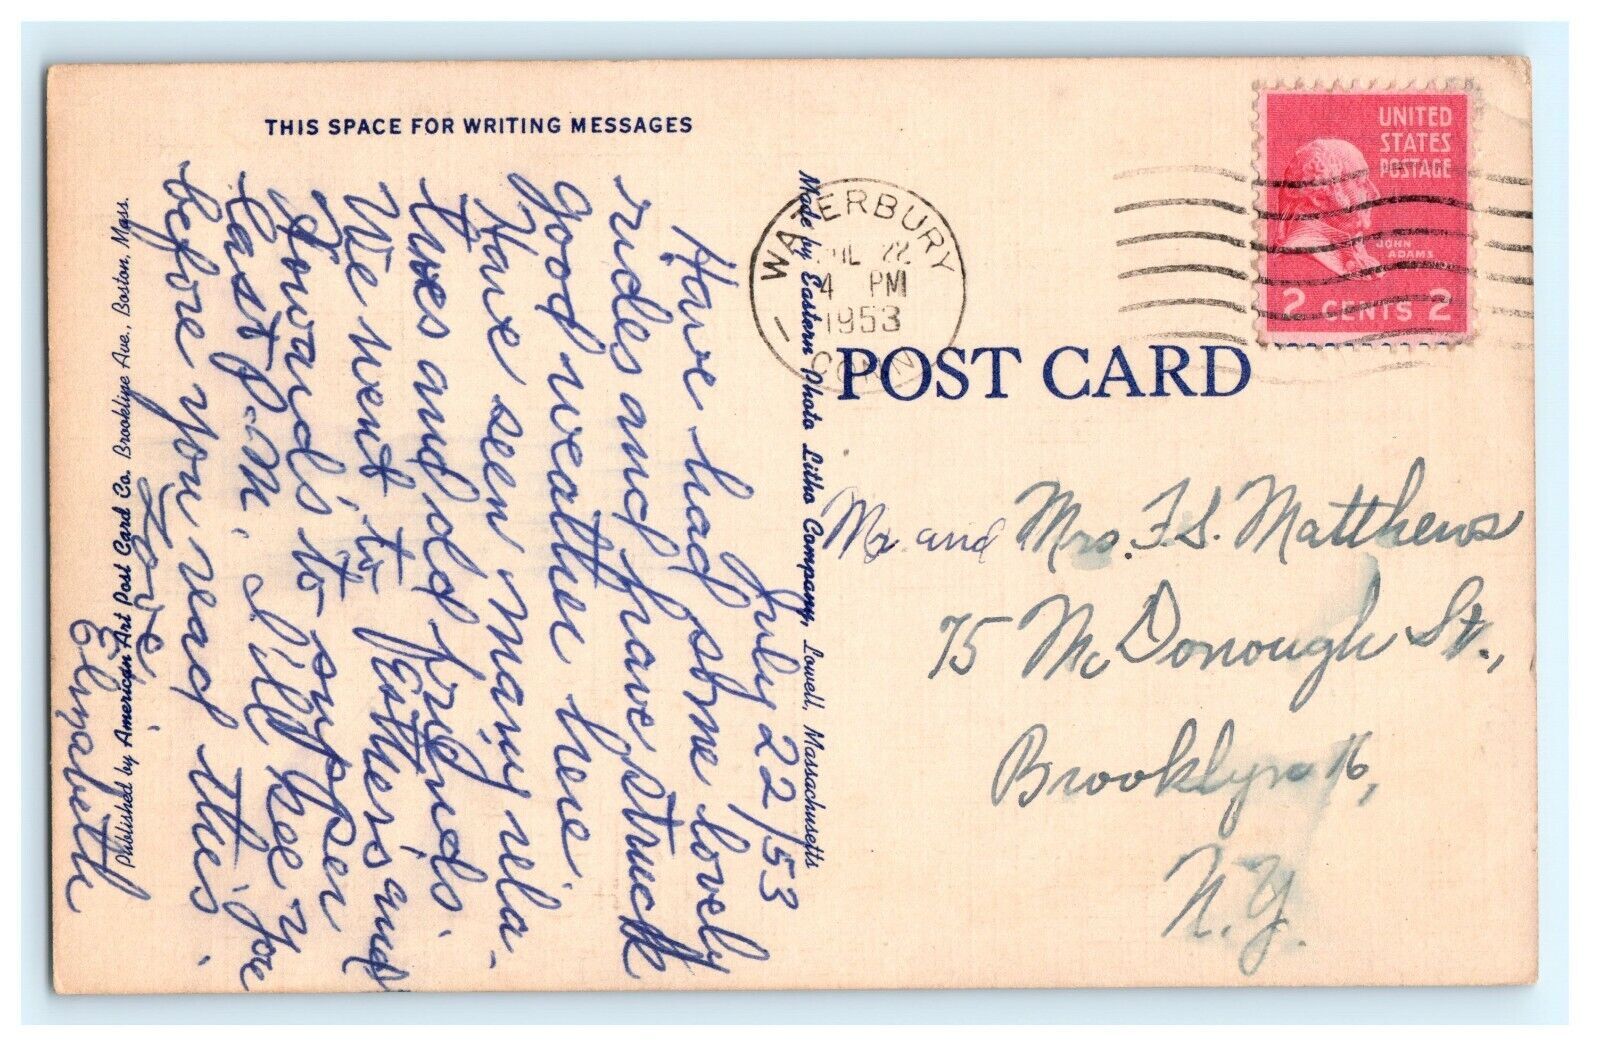 THIS SPACE FOR WRITING MESSAGES
July 22/53
Have had some lovely
rides and have struck
good weather here.
Have seen many rela-
tives and old friends.
We went to Esther's and
Howard's to supper
last P.M. I'll see you
before you read this.
Love
Elizabeth
Published by American Art Post Card Co. Brookline Ave., Boston, Mass.
Made by Eastern Photo Litho Company, Lowell, Massachusetts
WATERBURY
JUL 22
4 PM
1953
CONN
UNITED
STATES
POSTAGE
JOHN
ADAMS
2 CENTS 2
POST CARD
Mr. and Mrs. F. S. Matthews
75 McDonough St.,
Brooklyn 16,
N.Y.